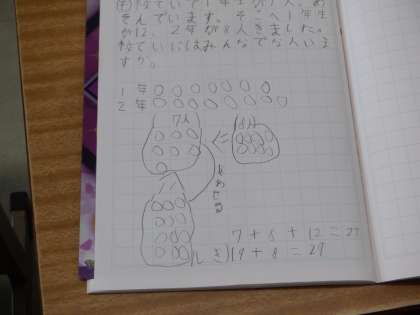 校ていで1年生が7人、あ
そんでいます。そこへ1年生
が 、2年が8人きました。
校ていにはみんなでなん人い
ますか。
1年
2年
7人
8人
あわせる
7+8+12=27
しき)19+8=27